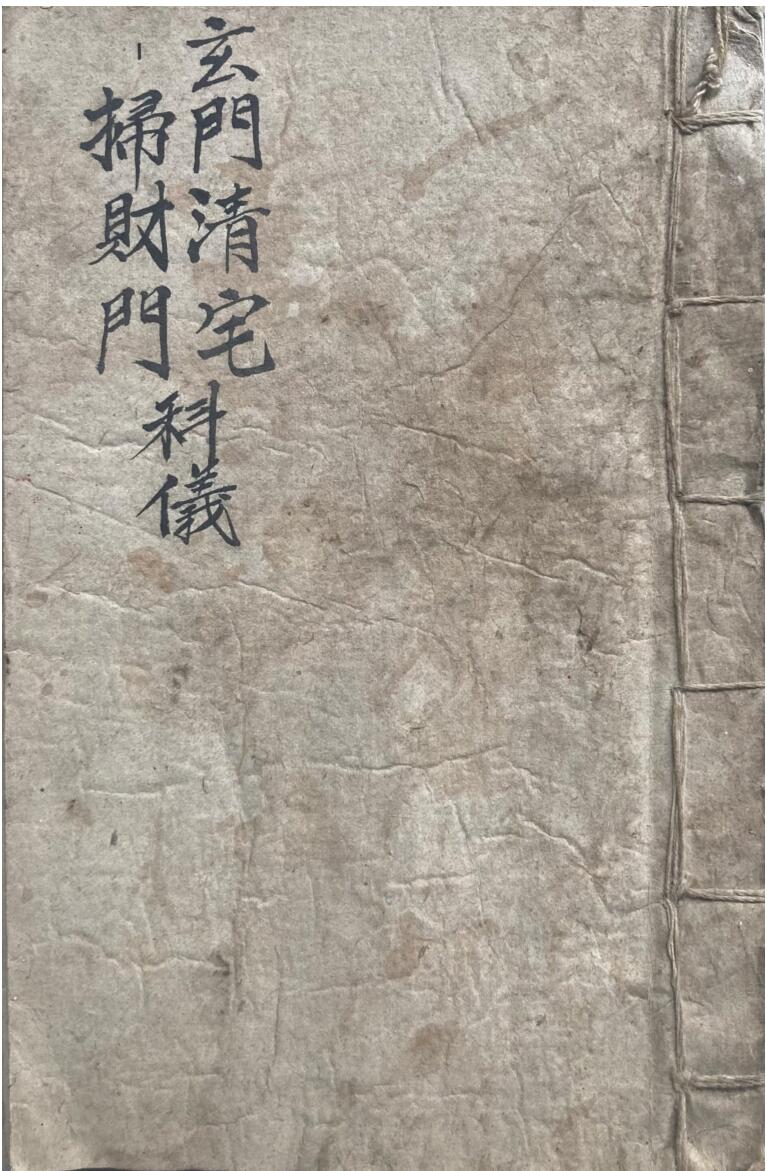 玄門清宅
掃財門
科儀